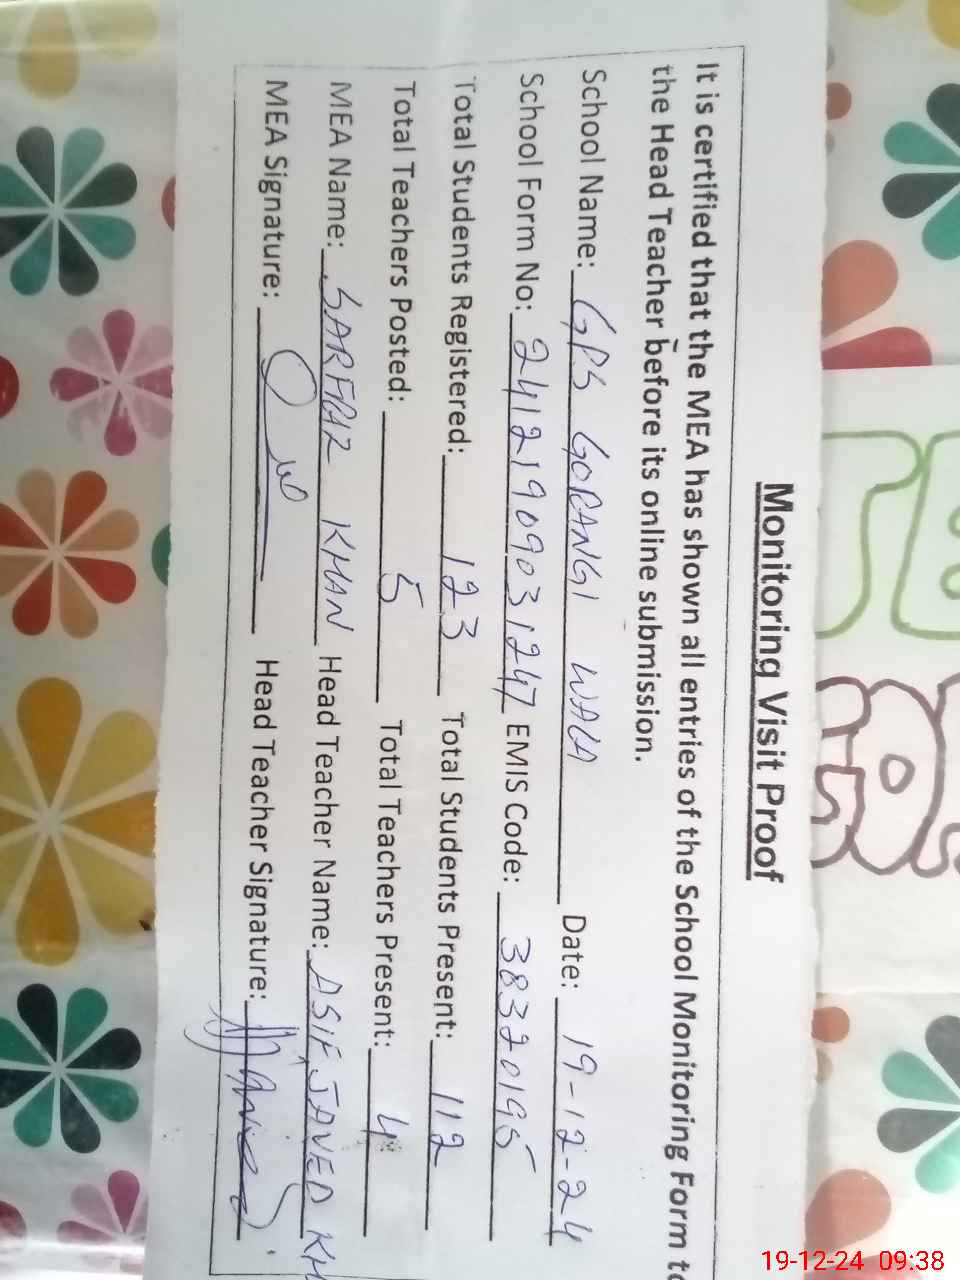 Monitoring Visit Proof
It is certified that the MEA has shown all entries of the School Monitoring Form to
the Head Teacher before its online submission.
School Name: GPS GORANGI WALA Date: 19-12-24
School Form No: 2412190909031247 EMIS Code: 38320195
Total Students Registered: 123 Total Students Present: 112
Total Teachers Posted: 5 Total Teachers Present: 4
MEA Name: SARFRAZ KHAN Head Teacher Name: ASIF JAVED KH
MEA Signature: Head Teacher Signature:
19-12-24 09:38